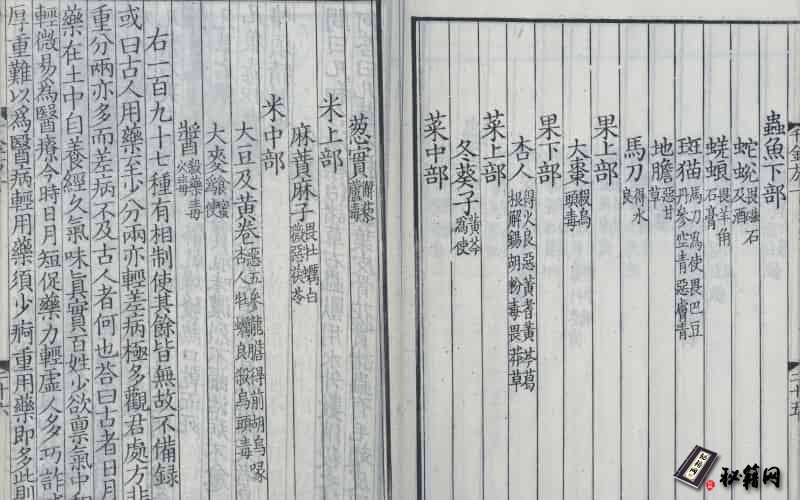 千金方一
蟲魚下部
蛇蛻畏磁石及酒
蜣螂畏羊角石膏
斑猫馬刀為使畏巴豆丹參空青惡膚青
地膽惡甘草
馬刀得水良
果上部
大棗殺烏頭毒
果下部
杏人得火良惡黃耆黃芩葛根解錫胡粉毒畏蘘草
菜上部
冬葵子黃芩為使
菜中部
二十五
葱實解藜蘆毒
米上部
麻蕡麻子畏牡蠣白薇惡茯苓
米中部
大豆及黃卷惡五參龍膽得前胡烏喙杏人牡蠣良殺烏頭毒
大麥食蜜為使
醬殺藥毒火毒
右一百九十七種有相制使其餘皆無故不備錄
或曰古人用藥至少分兩亦輕差病極多觀君處方非
重分兩亦多而差病不及古人者何也荅曰古者日月
藥在土中自養經久氣味真實百姓少欲稟氣中和
輕微易為醫療今時日月短促藥力輕虛人多巧詐
厚重難以為醫病輕用藥須少痾重用藥即多此則
二十六
秘籍网